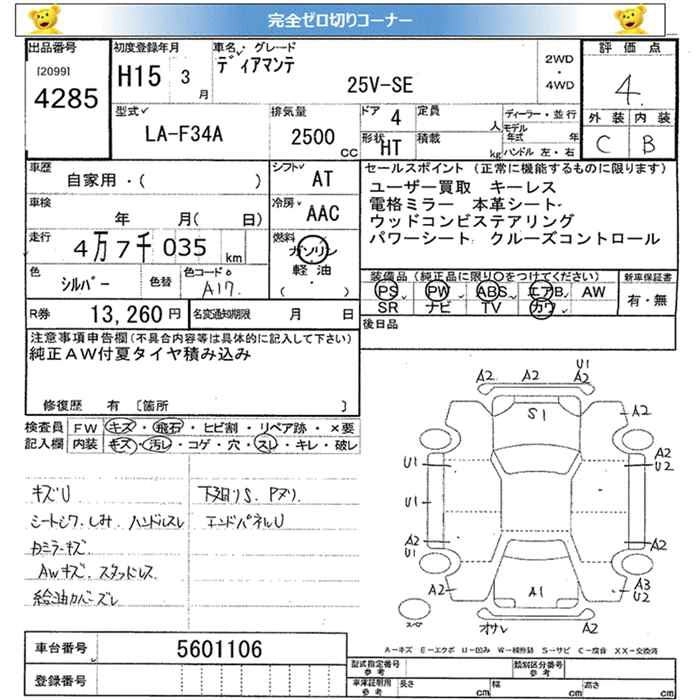 完全ゼロ切りコーナー
出品番号
[2099]
4285
初度登録年月
H15 3月
車名・グレード
ディアマンテ
25V-SE
2WD
・
4WD
評価点
4
外装 内装
C B
型式
LA-F34A
排気量
2500 CC
ドア 4
形状 HT
定員 人
積載 kg
ディーラー・並行
モデル年式 年
ハンドル 左・右
車歴
自家用・( )
シフト AT
車検
年 月( 日)
冷房 AAC
走行
4万7千035 km
燃料
ガソリン
軽油
( )
色
シルバー
色替
色コードNo
A17
R券 13,260円
名変通知期限 月 日
セールスポイント (正常に機能するものに限ります)
ユーザー買取 キーレス
電格ミラー 本革シート
ウッドコンビステアリング
パワーシート クルーズコントロール
装備品(純正品に限り○をつけてください)
新車保証書
PS PW ABS エアB AW
SR ナビ TV カワ
有・無
後日品
注意事項申告欄(不具合内容等は具体的に記入して下さい)
純正AW付夏タイヤ積み込み
修復歴 有 [箇所 ]
検査員記入欄
FW キズ・飛石・ヒビ割・リペア跡・×要
内装 キズ・汚レ・コゲ・穴・スレ・キレ・破レ
キズU
シートシワ・しみ ハンドルスレ
カミラーキズ
AWキズ、スタッドレス
給油カバーズレ
下廻りS、Pヌリ
エンドパネルU
U1
A2 A2 A2
S1
A2
U1
A2
U2
U1
A2
U1
A2
A2
A1
A3
U2
オサレ A2
スペア
A-キズ E-エクボ U-凹み W-補修跡 S-サビ C-腐食 XX-交換済
車台番号 5601106
登録番号
型式指定番号
参考
類別区分番号
参考
車庫証明用
参考
長さ cm 幅 cm 高さ cm